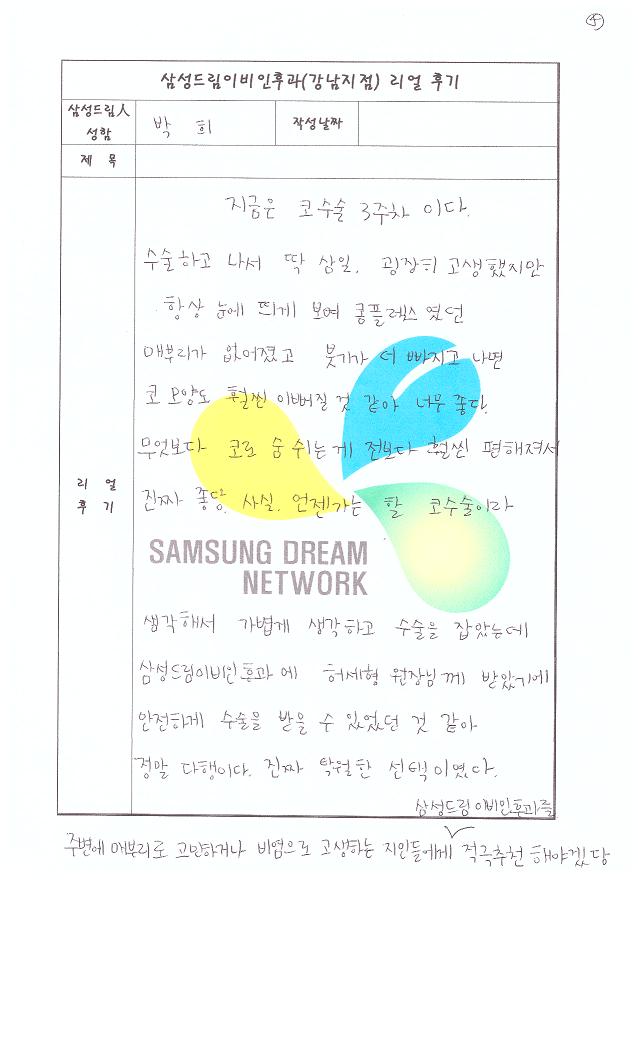 5
삼성드림이비인후과(강남지점) 리얼 후기
삼성드림人 성함
박 희
작성날짜
제 목
리 얼 후 기
지금은 코수술 3주차 이다.
수술하고 나서 딱 삼일. 굉장히 고생했지만
항상 눈에 띄게 보여 콤플렉스 였던
매부리가 없어졌고 붓기가 더 빠지고 나면
코 모양도 훨씬 이뻐질 것 같아 너무 좋다.
무엇보다 코로 숨 쉬는 게 전보다 훨씬 편해져서
진짜 좋당. 사실. 언젠가는 할 코수술이라
SAMSUNG DREAM
NETWORK
생각해서 가볍게 생각하고 수술을 잡았는데
삼성드림이비인후과에 허세형 원장님께 받았기에
안전하게 수술을 받을 수 있었던 것 같아
정말 다행이다. 진짜 탁월한 선택이였다.
삼성드림이비인후과를
주변에 매부리로 고민하거나 비염으로 고생하는 지인들에게 적극추천 해야겠당